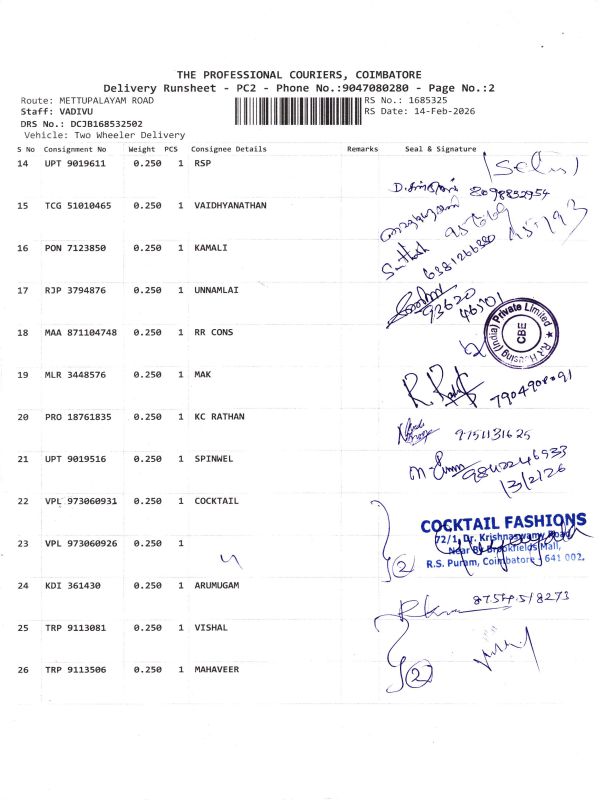 THE PROFESSIONAL COURIERS, COIMBATORE
Delivery Runsheet - PC2 - Phone No.:9047080280 - Page No.:2
Route: METTUPALAYAM ROAD RS No.: 1685325
Staff: VADIVU RS Date: 14-Feb-2026
DRS No.: DCJB168532502
Vehicle: Two Wheeler Delivery
S No Consignment No Weight PCS Consignee Details Remarks Seal & Signature
14 UPT 9019611 0.250 1 RSP
8098852954
15 TCG 51010465 0.250 1 VAIDHYANATHAN
16 PON 7123850 0.250 1 KAMALI
6381266880
17 RJP 3794876 0.250 1 UNNAMLAI
93620
46501
18 MAA 871104748 0.250 1 RR CONS
(India) Private Limited
CBE
19 MLR 3448576 0.250 1 MAK
20 PRO 18761835 0.250 1 KC RATHAN
9751131625
21 UPT 9019516 0.250 1 SPINWEL
9842246933
13/2/26
22 VPL 973060931 0.250 1 COCKTAIL
COCKTAIL FASHIONS
72/1, Dr. Krishnaswamy Road
Near By Brookfields Mall,
R.S. Puram, Coimbatore - 641 002.
23 VPL 973060926 0.250 1
2
24 KDI 361430 0.250 1 ARUMUGAM
8754518273
25 TRP 9113081 0.250 1 VISHAL
26 TRP 9113506 0.250 1 MAHAVEER
2